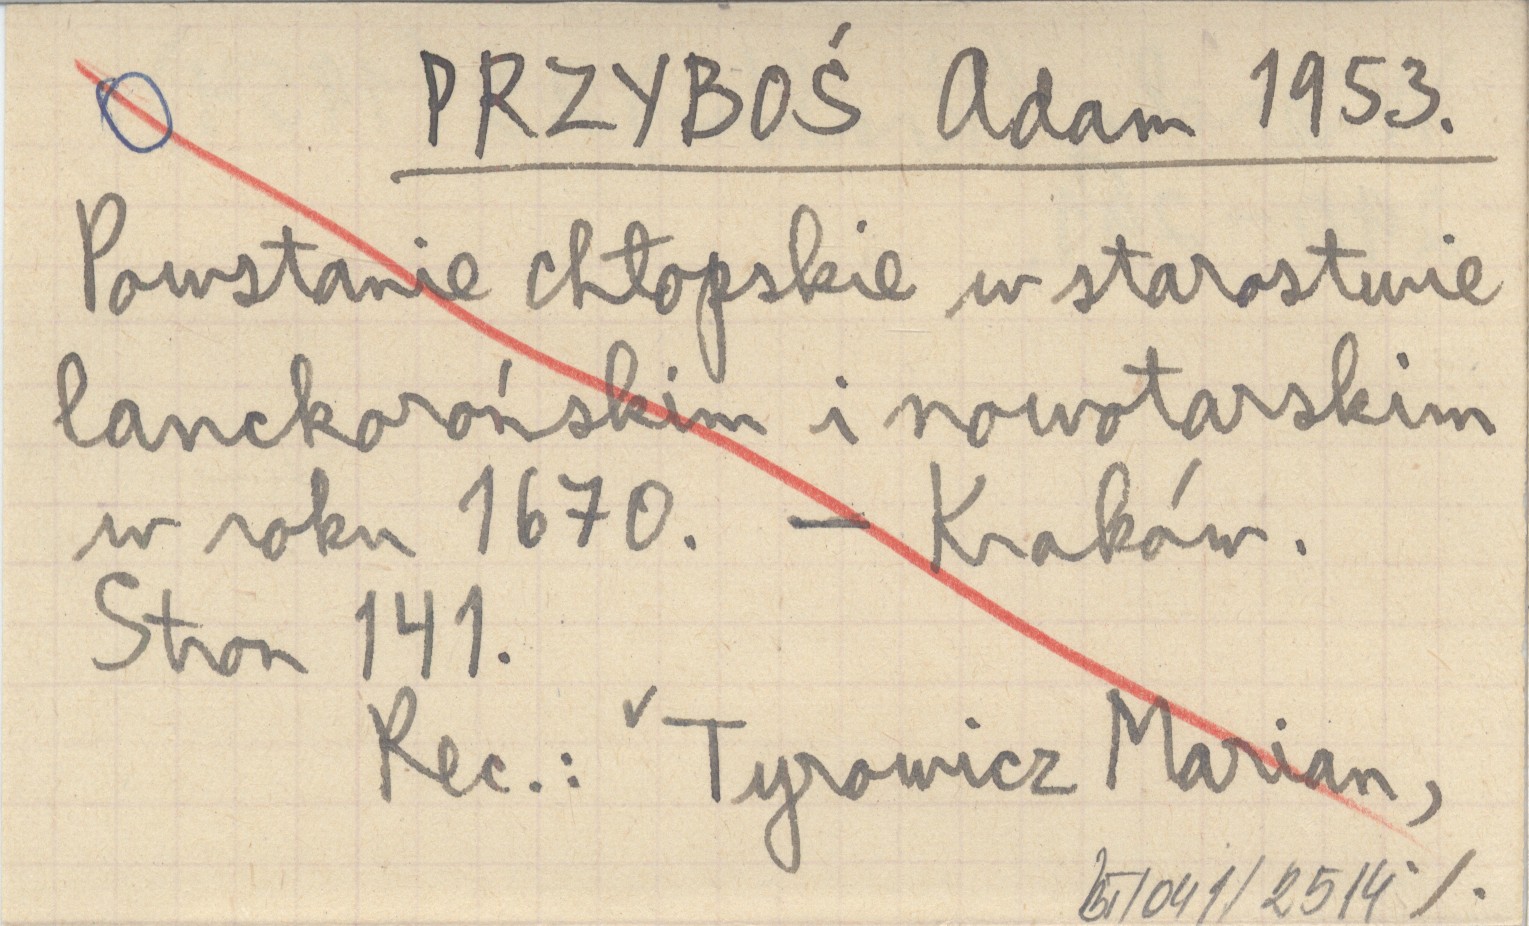 PRZYBOŚ Adam 1953.
Powstanie chłopskie w starostwie
lanckorońskim i nowotarskim
w roku 1670. — Kraków.
Stron 141.
Rec.: ✓ Tyrowicz Marian,
/041/2514 ./.